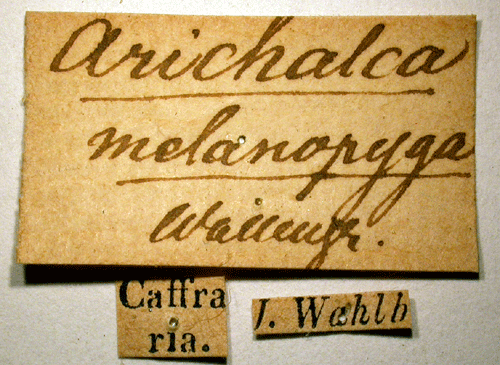 Arichalca
melanopyga
Wallengr.
Caffra
ria.
J. Wahlb